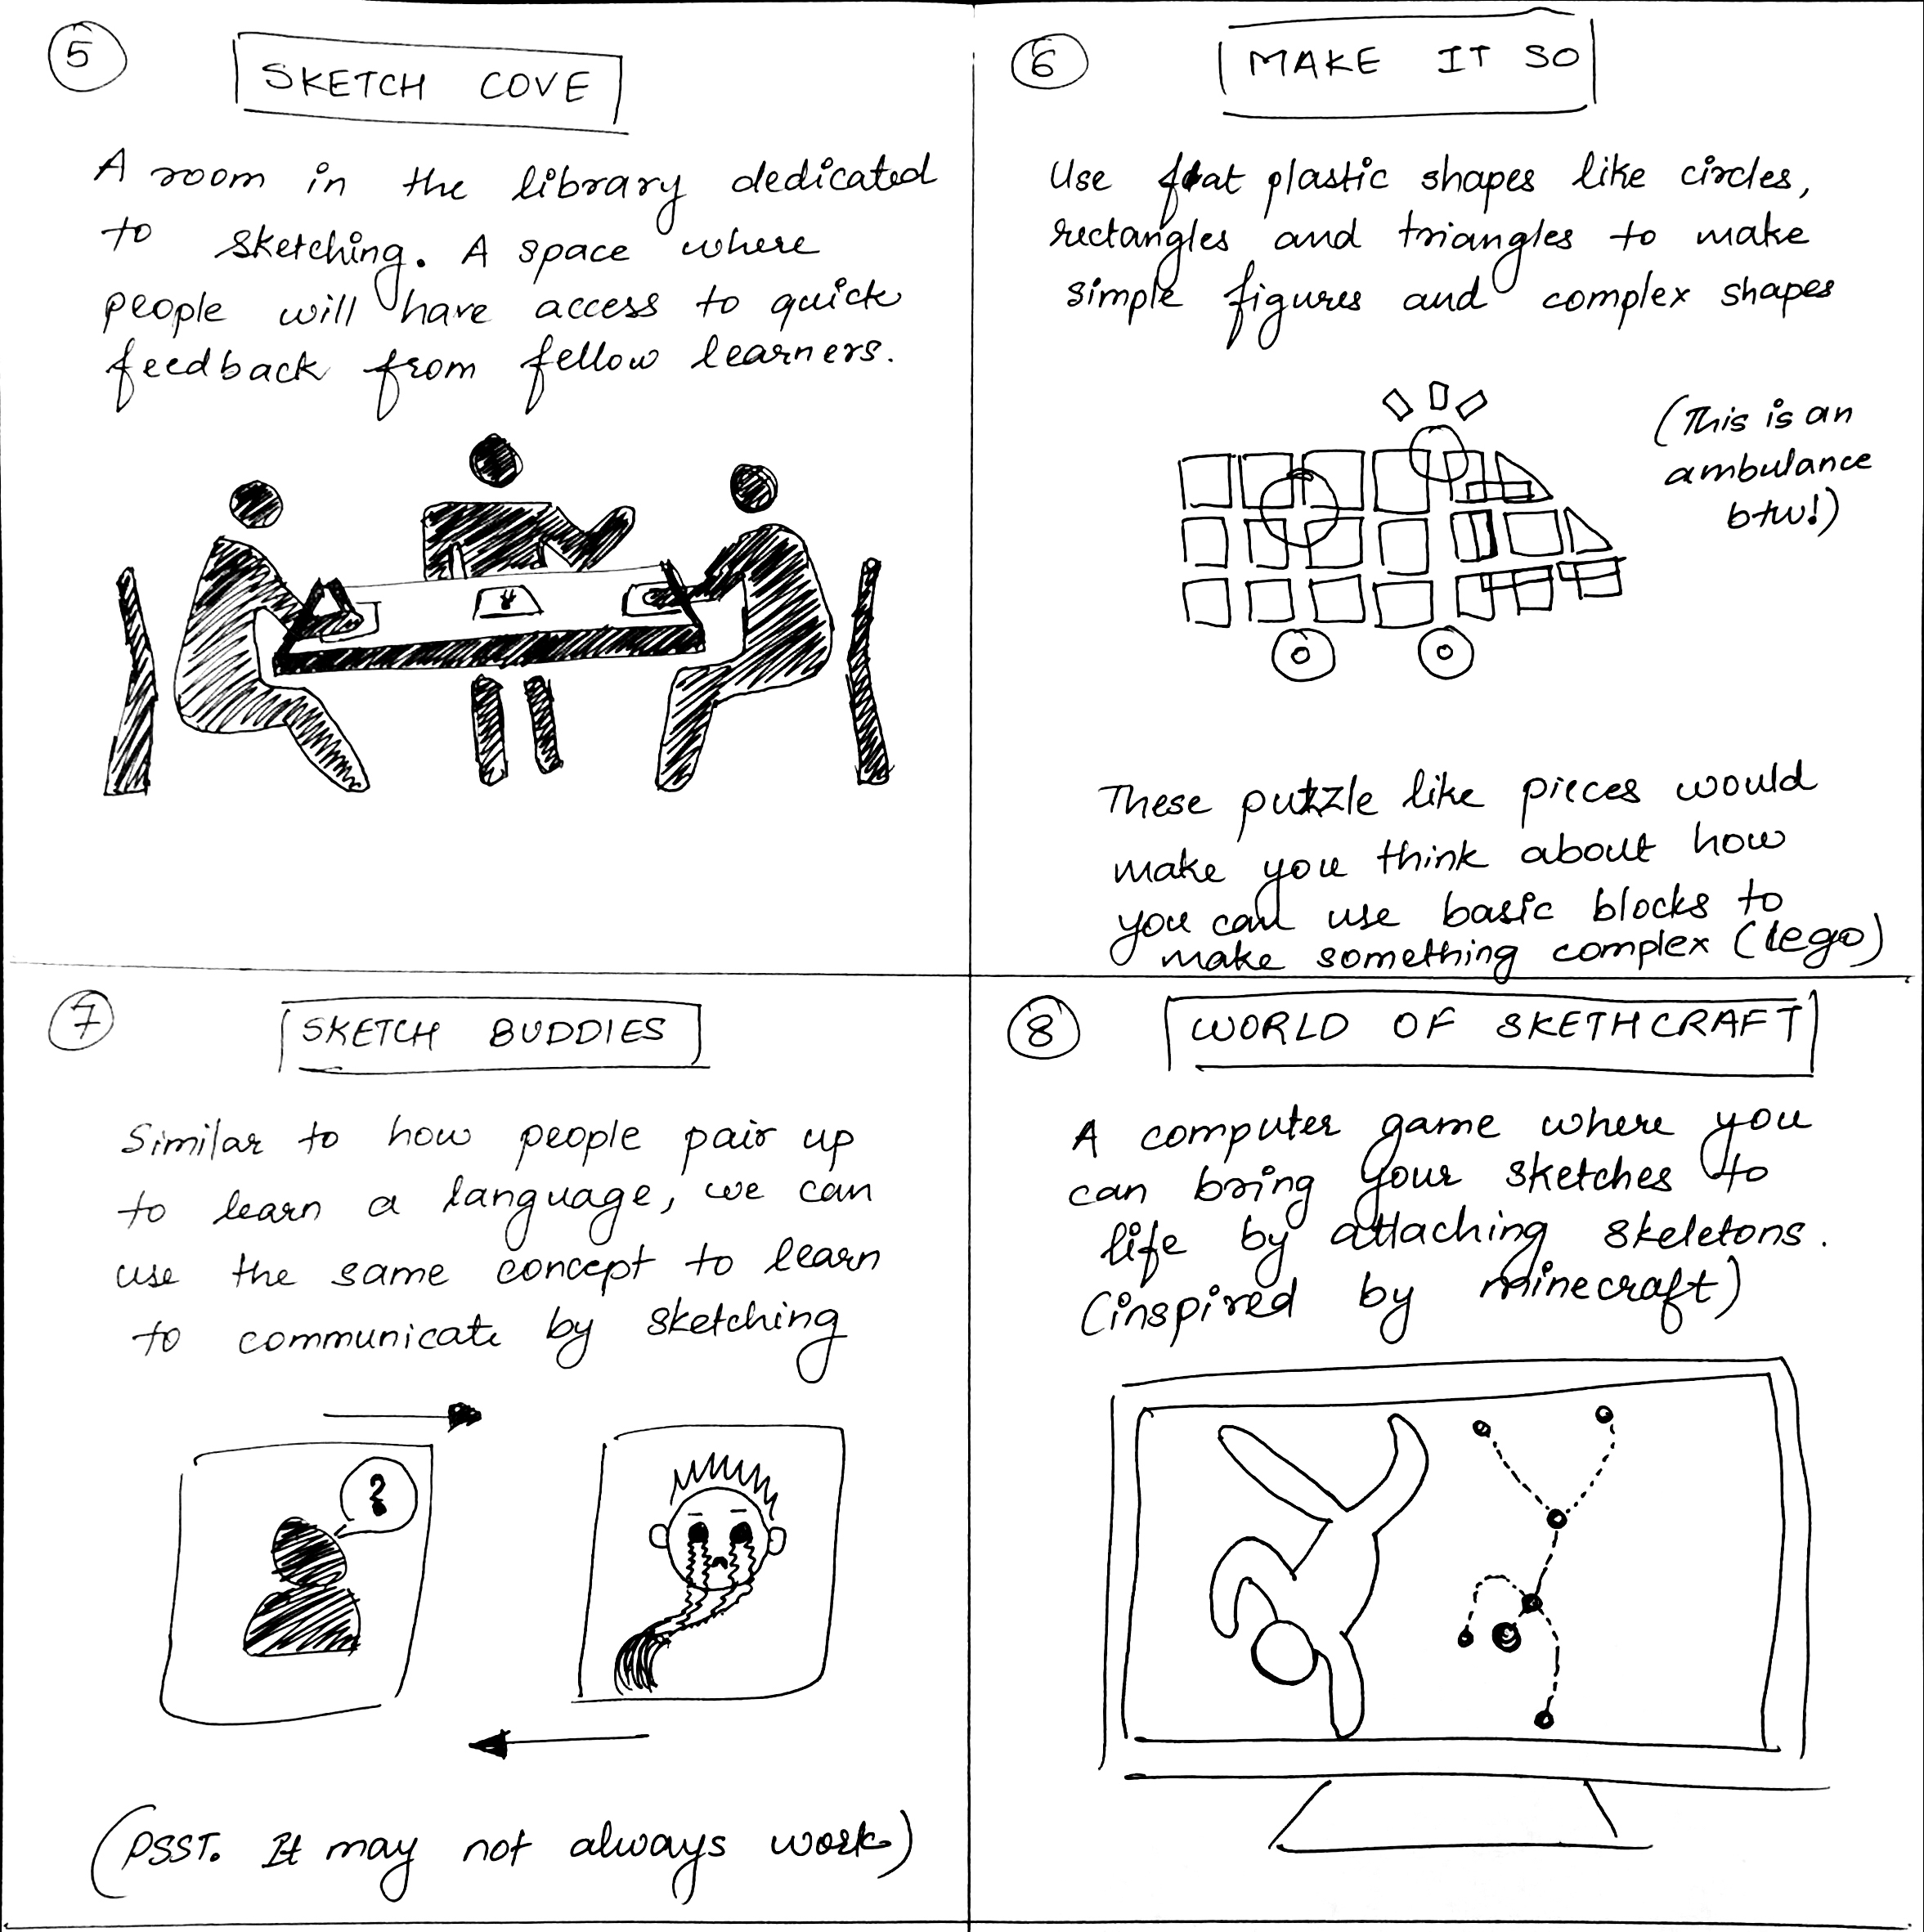 5
SKETCH COVE
A room in the library dedicated
to sketching. A space where
people will have access to quick
feedback from fellow learners.
6
MAKE IT SO
Use flat plastic shapes like circles,
rectangles and triangles to make
simple figures and complex shapes
(This is an
ambulance
btw!)
These puzzle like pieces would
make you think about how
you can use basic blocks to
make something complex (lego)
7
SKETCH BUDDIES
Similar to how people pair up
to learn a language, we can
use the same concept to learn
to communicate by sketching
?
(PSST. It may not always work)
8
WORLD OF SKETHCRAFT
A computer game where you
can bring your sketches to
life by attaching skeletons.
(inspired by minecraft)